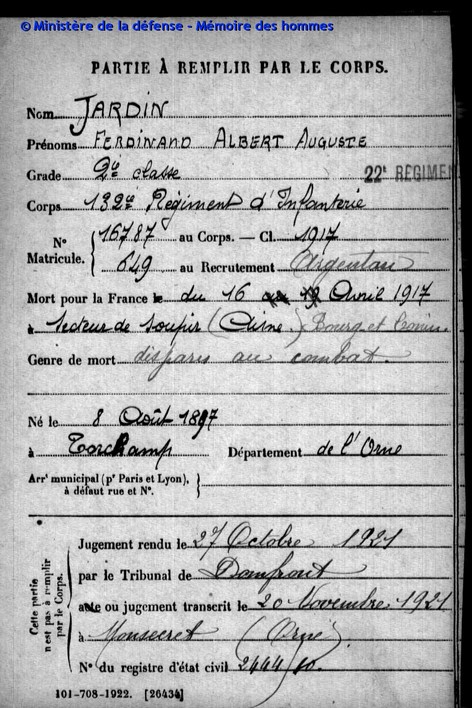 © Ministère de la défense - Mémoire des hommes
PARTIE À REMPLIR PAR LE CORPS.
Nom JARDIN
Prénoms FERDINAND ALBERT AUGUSTE
Grade 2e classe
22e REGIMEN
Corps 132e Régiment d'Infanterie
N° Matricule. { 16787 au Corps. — Cl. 1917
649 au Recrutement Argentan
Mort pour la France le du 16 au 19 Avril 1917
à Secteur de Soupir (Aisne) Bourg et Comin
Genre de mort disparu au combat
Né le 8 Août 1897
à Torchamp Département de l'Orne
Arrt municipal (pr Paris et Lyon), à défaut rue et N°. }
Cette partie n'est pas à remplir par le Corps.
Jugement rendu le 27 Octobre 1921
par le Tribunal de Domfront
acte ou jugement transcrit le 20 Novembre 1921
à Monsecret (Orne)
N° du registre d'état civil 2444/10.
101-708-1922. [26434]